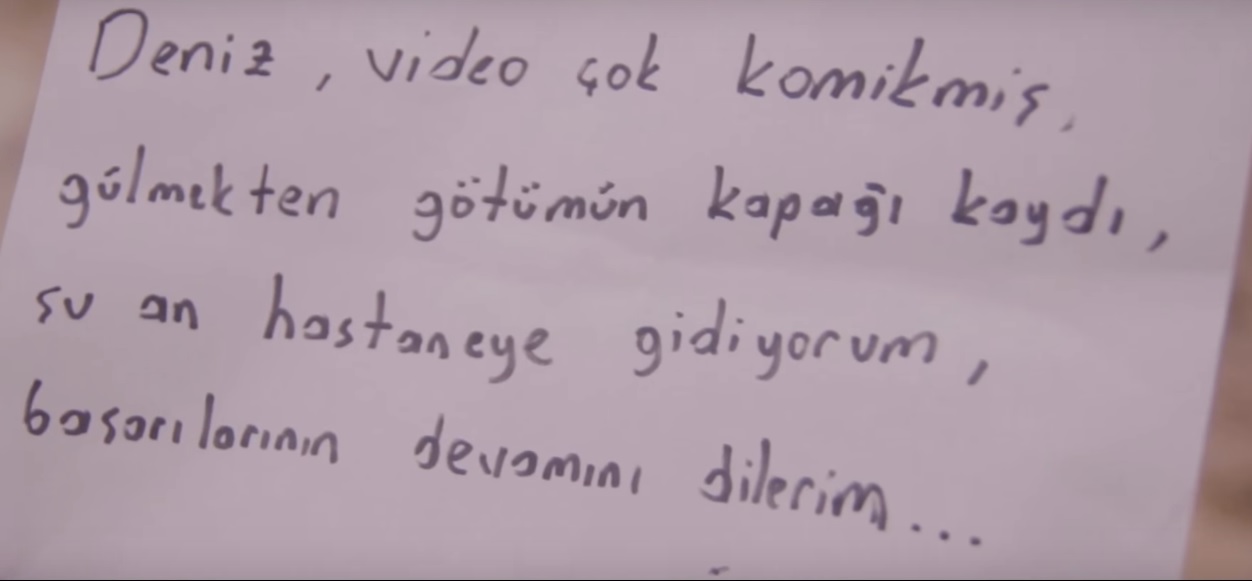 Deniz, video çok komikmiş,
gülmekten götümün kapağı kaydı,
şu an hastaneye gidiyorum,
başarılarının devamını dilerim...